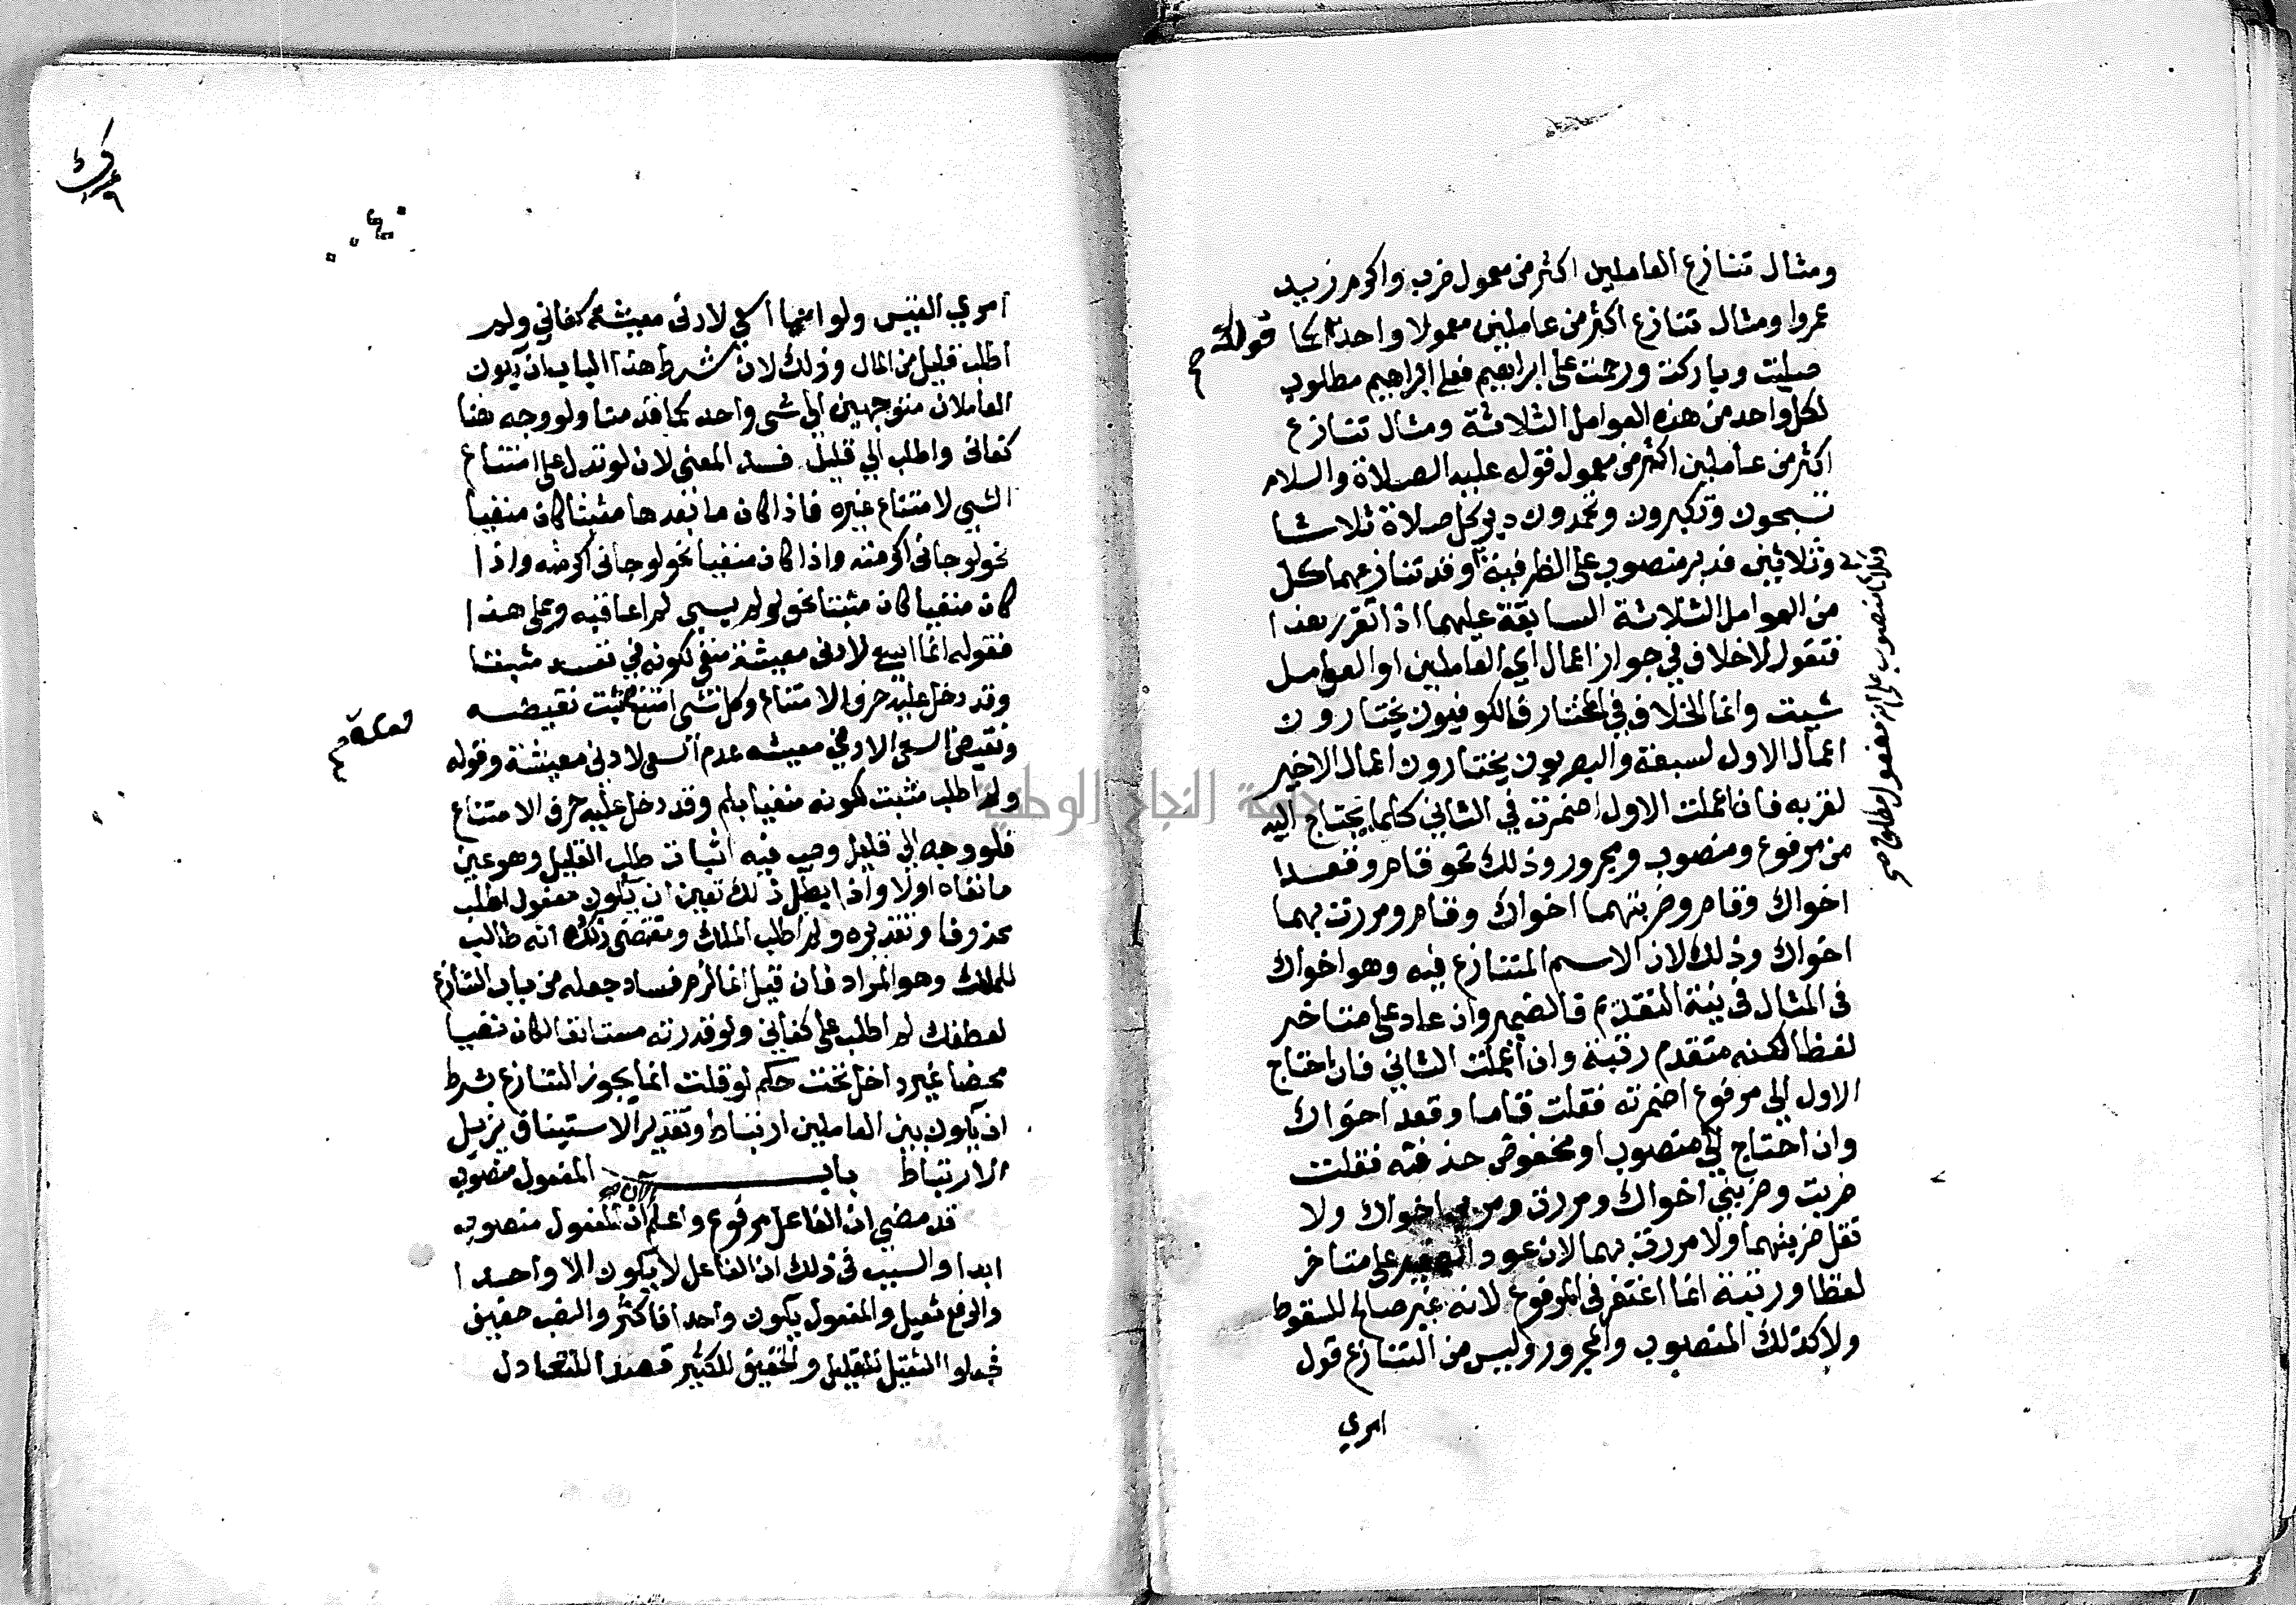 ومثال تنازع العاملين اكثر من معمول ضرب واكرم زيد
عمروا ومثال تنازع اكثر من عاملين معمولا واحدا كما قولك
صليت وباركت ورحمت على ابراهيم فعلى ابراهيم مطلوب
لكل واحد من هذه العوامل الثلاثة ومثال تنازع
اكثر من عاملين اكثر من معمول قوله عليه الصلاة والسلام
تسبحون وتكبرون وتحمدون دبر كل صلاة ثلاثا
وثلاثين فدبر منصوب على الظرفية وقد تنازعهما كل
وثلاثا منصوب على انه مفعول مطلق صح
من العوامل الثلاثة السابقة عليهما اذا تقرر هذا
فنقول لا خلاف في جواز اعمال اي العاملين او العوامل
شيت وانما الخلاف في المختار فالكوفيون يختارون
اعمال الاول لسبقه والبصريون يختارون اعمال الاخير
لقربه فان اعملت الاول اضمرت في الثاني كلما يحتاج اليه
من مرفوع ومنصوب ومجرور وذلك نحو قام وقعدا
اخواك وقام وضربتهما اخواك وقام ومررت بهما
اخواك وذلك لان الاسم المتنازع فيه وهو اخواك
في المثال في نية التقديم فالضمير وان عاد على متاخر
لفظا لكنه متقدم رتبة وان اعملت الثاني فان احتاج
الاول الى مرفوع اضمرته فقلت قاما وقعد اخواك
وان احتاج الى منصوب او مخفوض حذفته فقلت
ضربت وضربني اخواك ومررت ومر بي اخواك ولا
تقل ضربتهما ولا مررت بهما لان عود الضمير على متاخر
لفظا ورتبة انما اغتفر في المرفوع لانه غير صالح للسقوط
ولا كذلك المنصوب والمجرور وليس من التنازع قول
امري
امري القيس ولو انما اسعى لادنى معيشة كفاني ولم
اطلب قليل من المال وذلك لان شرط هذا الباب ان يكون
العاملان متوجهين الى شي واحد كما قدمنا ولو وجه هنا
كفاني واطلب الى قليل فسد المعنى لان لو تدل على امتناع
الشي لامتناع غيره فاذا كان ما بعدها مثبتا كان منفيا
نحو لو جاني اكرمته واذا كان منفيا نحو لو جاني اكرمته واذا
كان منفيا كان مثبتا نحو لو لم يسي لم اعاقبه وعلى هذا
فقوله انما اسعى لادنى معيشة منفي لكونه في نفسه مثبتا
وقد دخل عليه حرف الامتناع وكل شي امتنع ثبت نقيضه
ونقيض السعي لادنى معيشه عدم السعي لادنى معيشة وقوله
ولم اطلب مثبت لكونه منفيا بلم وقد دخل عليه حرف الامتناع
فلو وجه الى قليل وجب فيه اثبات طلب القليل وهو عين
ما نفاه اولا واذا بطل ذلك تعين ان يكون مفعول اطلب
محذوفا وتقديره ولم اطلب الملك ومقتضى ذلك انه طالب
للملك وهو المراد فان قيل انما لزم فساد جعله من باب التنازع
لعطفك لم اطلب على كفاني ولو قدرته مستانفا كان نفيا
محضا غير داخل تحت حكم لو قلت انما يجوز التنازع بشرط
ان يكون بين العاملين ارتباط وتقدير الاستيناف يزيل
الارتباط باب المفعول منصوب
قد مضى ان الفاعل مرفوع واعلم الآن ان المفعول منصوب
ابدا والسبب في ذلك ان الفاعل لا يكون الا واحدا
والرفع ثقيل والمفعول يكون واحدا فاكثر والنصب خفيف
فجعلوا الثقيل للقليل والخفيف للكثير قصدا للتعادل
جامعة النجاح الوطنية